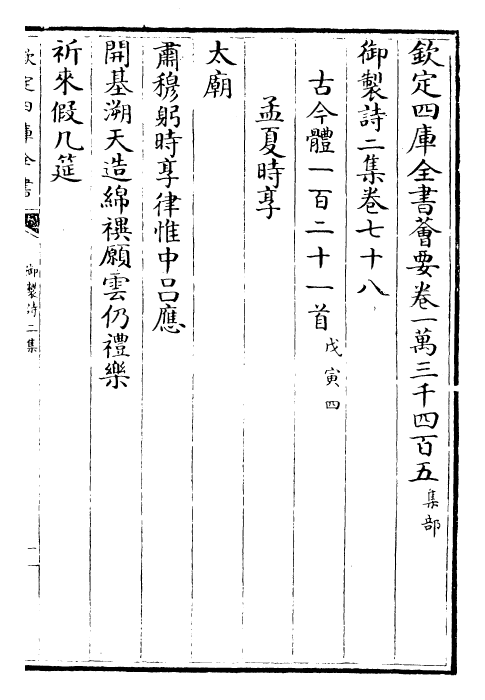 欽定四庫全書薈要卷一萬三千四百五 集部
御製詩二集卷七十八
古今體一百二十一首 戊寅四
孟夏時享
太廟
肅穆躬時享律惟中呂應
開基溯天造綿禩願雲仍禮樂
祈來假几筵
欽定四庫全書
御製詩二集
一